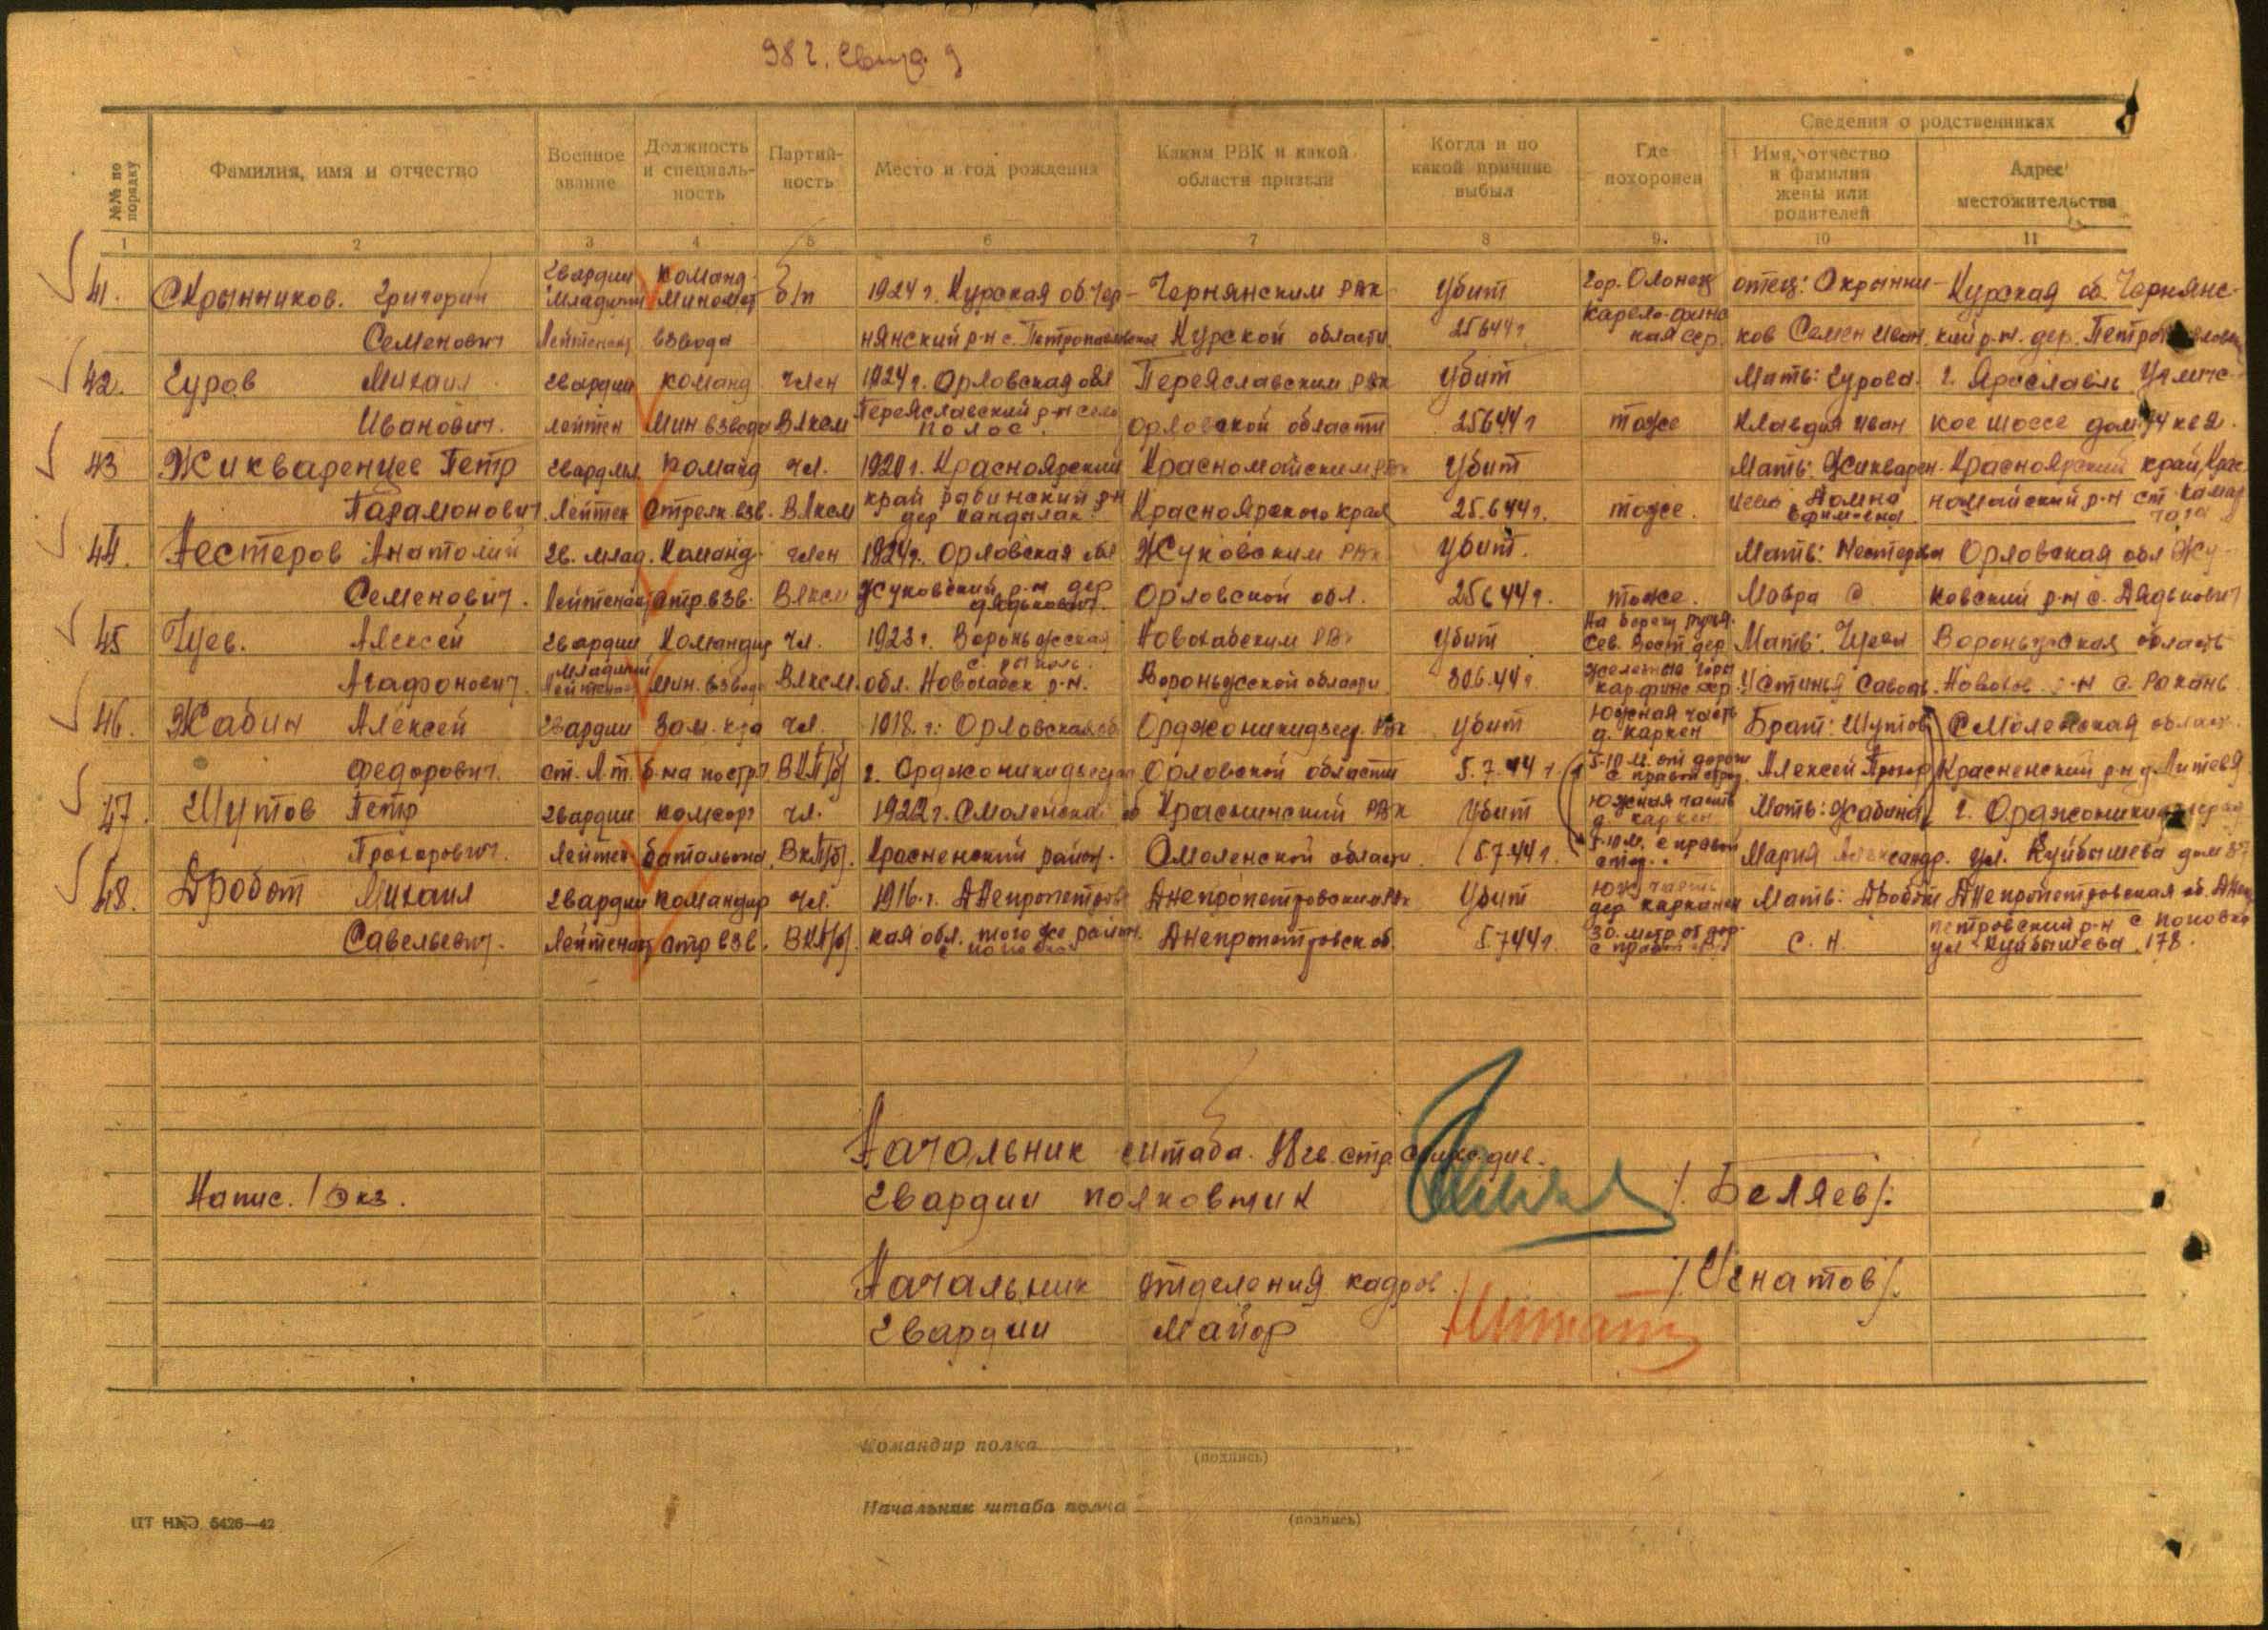 98 г. свсд 9
Сведения о родственниках
№№ по порядку
Фамилия, имя и отчество
Военное звание
Должность и специаль-ность
Партий-ность
Место и год рождения
Каким РВК и какой области призван
Когда и по какой причине выбыл
Где похоронен
Имя, отчество и фамилия жены или родителей
Адрес местожительства
1 2 3 4 5 6 7 8 9. 10 11
41. Скрынников. Григорий Гвардии Команд. б/п 1924 г. Курская об. Чер- Чернянским РВК Убит Гор. Олонец отец: Скрынни- Курская об. Чернянс-
Семенович Младший Лейтенант Миномет взвода нянский р-н с. Петропавловка Курской области 25.6.44 г. Карело-финс кая сср. ков Семен Иван. кий р-н. дер. Петропавловка
42. Гуров Михаил Гвардии команд член 1924 г. Орловская обл Переяславским РВК Убит Мать: Гурова. г. Ярославль Угличс-
Иванович. лейтен Мин взвода ВЛКСМ Переяславский р-н село Орловской области 25.6.44 г тоже Клавдия Иван кое шоссе дом
43 Жикваренцев Петр Гвардии команд чл. 1920 г. Красноярский Краснотайским РВК Убит Мать: Жикварен- Красноярский край,
Парамонович. Лейтен Стрелк. взв. ВЛКСМ край рыбинский р-н дер Красноярского края 25.6.44 г. тоже. цева Домна р-н ст.
44. Нестеров Анатолий Гв. млад. Команд. член 1924 г. Орловская обл Жуковским РВК Убит. Мать: Нестерова Орловская обл Жу-
Семенович. Лейтенант стр. взв. ВЛКСМ Жуковский р-н дер дядькович. Орловской обл. 25.6.44 г. тоже. Мавра С ковский р-н с. Дядькович
45 Чуев. Алексей Гвардии Командир чл. 1923 г. Воронежская Убит На берегу ручья. Сев. Вост дер Мать: Чуева Воронежская область
Агафонович. младший Лейтенант мин. взвода ВЛКСМ. обл. р-н. Воронежской области 30.6.44 г Железные горы кар. финс сср. Устинья р-н с.
46. Жабин Алексей Гвардии Зам. к-ра чл. 1918. г. Орловская об Орджоникидзегр. РВК убит Южная часть д. каркен Брат: Шутов Смоленская област.
Федорович. ст. Л-т. б-на по стр. ч. ВКП(б) г. Орджоникидзеград Орловской области 5.7.44 г. 5-10 м. от дороги с правой стор. Алексей Прохор Красненский р-н д.
47. Шутов Петр Гвардии комсорг чл. 1922 г. Смоленска об Краснинский РВК Убит Южная часть д. каркен Мать: Жабина г. Орджоникидзеград
Прохорович. Лейтен. батальона. ВКП(б). Красненский район. Смоленской области. 5.7.44 г. 5-10 м. с правой стор. Мария Александр. ул. Куйбышева дом
48. Дробот Михаил Гвардии командир чл. 1916. г. Днепропетровс Днепропетровским РВК Убит Юж. часть дер Мать: Дробот Днепропетровская об.
Савельевич. Лейтенант стр взв. ВКП(б). кая обл. того же район. Днепропетровск об. 5.7.44 г. 30. метр от дор. с правой стор. С. Н. петровский р-н с поповка ул Куйбышева 178.
Начальник штаба. 98 гв. стр див.
Напис. 1 экз. Гвардии полковник /. Беляев/.
Начальник отделения кадров. /. Игнатов/.
Гвардии Майор
Командир полка
(подпись)
Начальник штаба полка
(подпись)
ЦТ НКО 5426—42